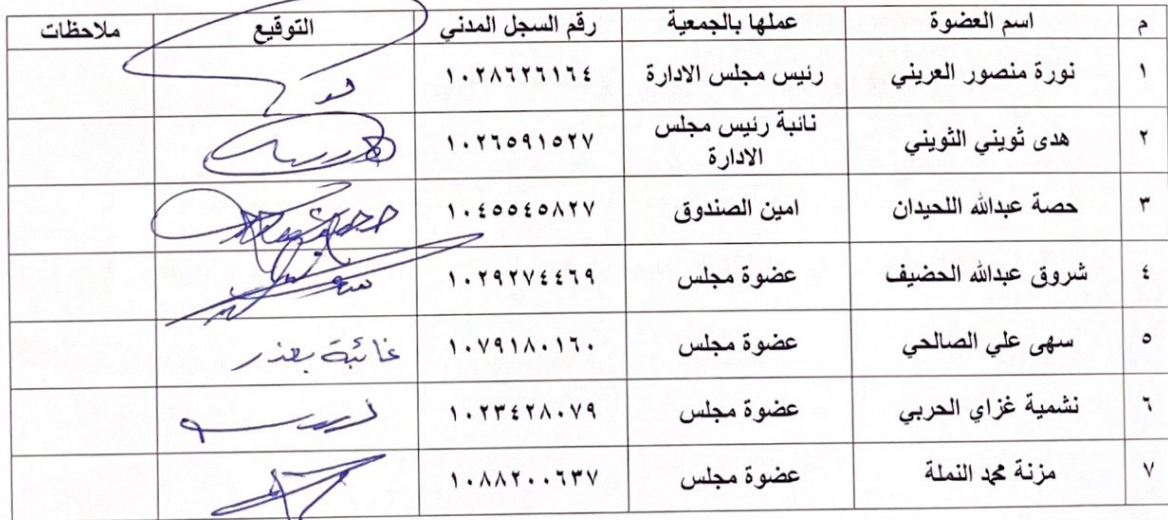 م اسم العضوة عملها بالجمعية رقم السجل المدني التوقيع ملاحظات
١ نورة منصور العريني رئيس مجلس الادارة ١٠٢٨٦٢٦١٦٤
٢ هدى ثويني الثويني نائبة رئيس مجلس الادارة ١٠٢٦٥٩١٥٢٧
٣ حصة عبدالله اللحيدان امين الصندوق ١٠٤٥٥٤٥٨٢٧
٤ شروق عبدالله الحضيف عضوة مجلس ١٠٢٩٢٧٤٤٦٩
٥ سهى علي الصالحي عضوة مجلس ١٠٧٩١٨٠١٦٠ غائبة بعذر
٦ نشمية غزاي الحربي عضوة مجلس ١٠٢٣٤٢٨٠٧٩
٧ مزنة محمد النملة عضوة مجلس ١٠٨٨٢٠٠٦٣٧